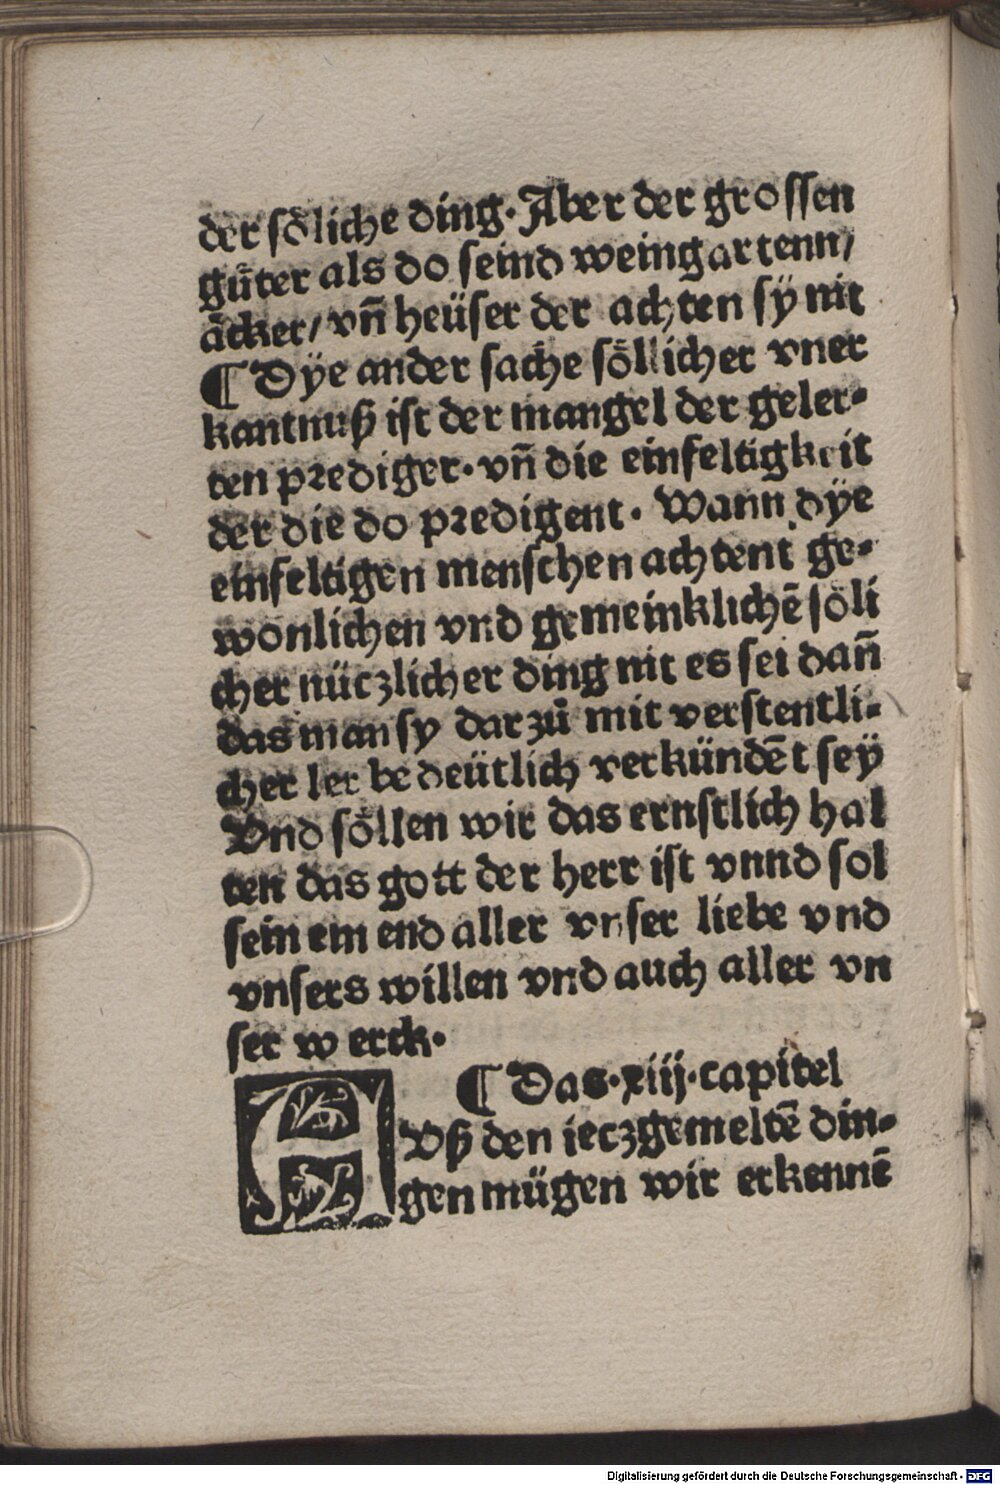 der soͤliche ding. Aber der grossen
guͤter als do seind weingartenn/
aͤcker/ vn̄ heüser der achten sÿ nit
¶ Dÿe ander sache soͤllicher vner
kantnuß ist der mangel der geler⸗
ten prediger. vn̄ die einfeltigkeit
der die do predigent. Wann dÿe
einfeltigen menschen achtent ge⸗
wonlichen vnd gemeinklichē soͤli
cher nüczlicher ding nit es sei dan̄
das man sy dar zuͦ mit verstentli⸗
cher ler bedeütlich verkündēt seÿ
Vnd soͤllen wir das ernstlich hal
ten das gott der herr ist vnnd sol
sein ein end aller vnser liebe vnd
vnsers willen vnd auch aller vn
ser werck.
¶ Das .xiij. capitel
AVß den ieczgemeltē din⸗
gen mügen wir erkennē
Digitalisierung gefördert durch die Deutsche Forschungsgemeinschaft - DFG